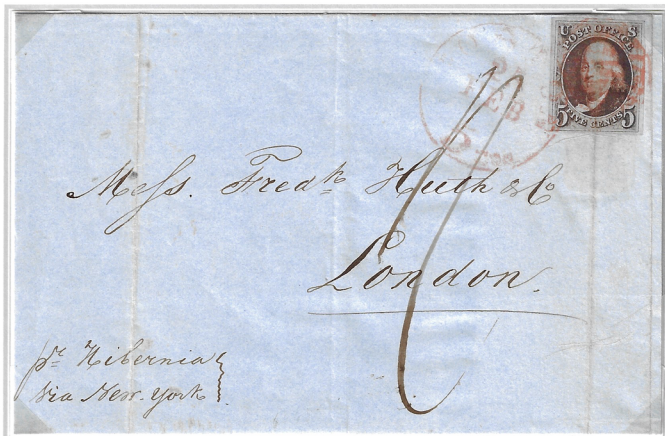 U S
POST OFFICE
5 FIVE CENTS 5
FEB
5
Messs. Fredk Huth & Co
London.
pr Hibernia
via New-York